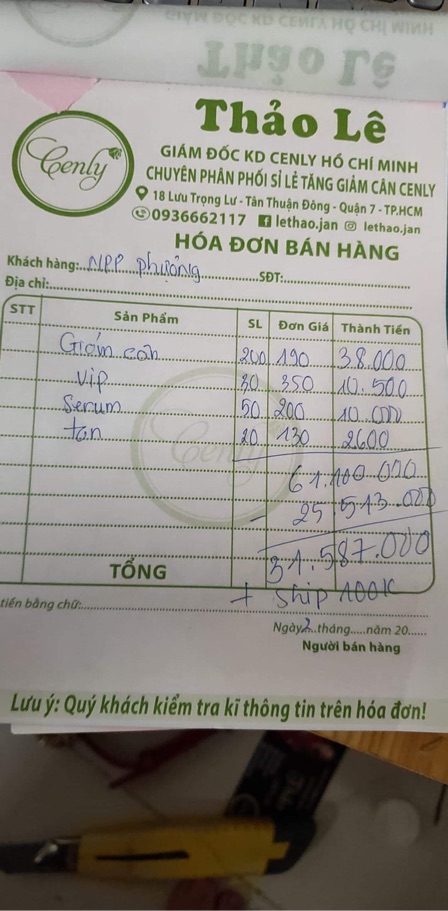 Thảo Lê
Cenly
GIÁM ĐỐC KD CENLY HỒ CHÍ MINH
CHUYÊN PHÂN PHỐI SỈ LẺ TĂNG GIẢM CÂN CENLY
18 Lưu Trọng Lư - Tân Thuận Đông - Quận 7 - TP.HCM
0936662117 lethao.jan lethao.jan
HÓA ĐƠN BÁN HÀNG
Khách hàng: NPP phượng SĐT:
Địa chỉ:
STT Sản Phẩm SL Đơn Giá Thành Tiền
Giảm cân 200 190 38.000
Vip 30 350 10.500
Serum 50 200 10.000
tan 20 130 2600
61.100.000
- 25.513.000
31.587.000
TỔNG
+ Ship 100K
tiền bằng chữ:
Ngày 2 tháng.....năm 20......
Người bán hàng
Lưu ý: Quý khách kiểm tra kĩ thông tin trên hóa đơn!